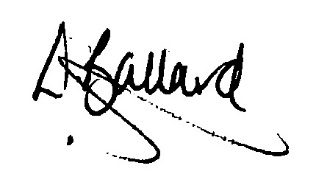 A. Ballard